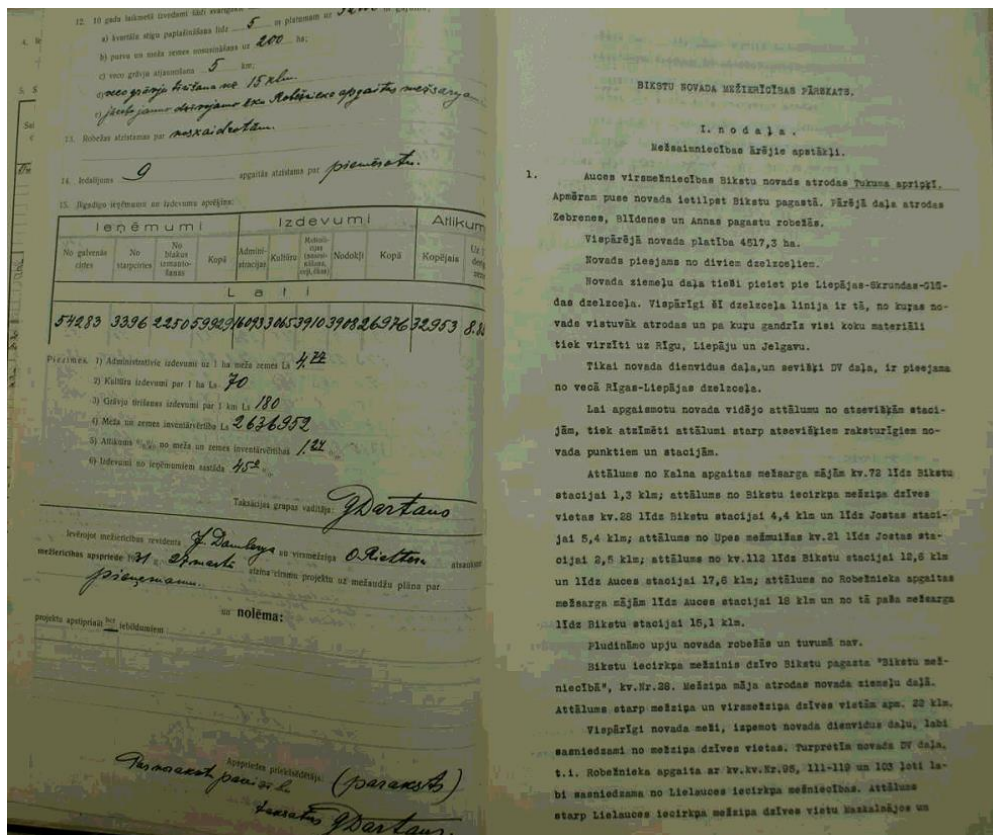 12. 10 gada laikmetā izvedami šādi svarīgākie
a) kvartālu stigu paplašināšana līdz 5 m platumam uz
b) purvu un meža zemes nosusināšana uz 200 ha;
c) veco grāvju atjaunošana 5 km;
d) veco grāvju tīrīšana uz 15 klm.
13. Robežas atzīstamas par noskaidrotām.
14. Iedalījums 9 apgaitās atzīstams par piemērotu.
15. Ikgadīgo ieņēmumu un izdevumu aprēķins:
Ieņēmumi Izdevumi Atlikum
No galvenās cirtes No starpcirtes No blakus izmantošanas Kopā Administrācijas Kultūru Nodokļi Kopā Kopējais
Lati
54283 3396 2250 59929 16093 3065 3910 3908 26976 32953
Piezīmes. 1) Administratīvie izdevumi uz 1 ha meža zemes Ls
2) Kultūru izdevumi par 1 ha Ls 70
3) Grāvju tīrīšanas izdevumi par 1 km Ls 180
4) Meža un zemes inventārvērtība Ls 2636952
5) Atlikums % no meža un zemes inventārvērtības
6) Izdevumi no ieņēmumiem sastāda
Taksācijas grupas vadītājs:
Ievērojot mežierīcības revidenta J. Damberga un virsmežziņa atsauksmi
mežierīcības apspriede 1931 g. atzina cirsmu projektu uz mežaudžu plāna par
pieņemamu.
un nolēma:
projektu apstiprināt bez iebildumiem
Apspriedes priekšsēdētājs: (paraksts)
BIKSTU NOVADA MEŽIERĪCĪBAS PĀRSKATS.
I. nodaļa.
Mežsaimniecības ārējie apstākļi.
1. Auces virsmežniecības Bikstu novads atrodas Tukuma apriņķī.
Apmēram puse novada ietilpst Bikstu pagastā. Pārējā daļa atrodas
Zebrenes, Blīdenes un Annas pagastu robežās.
Vispārējā novada platība 4517,3 ha.
Novads pieejams no diviem dzelzceļiem.
Novada ziemeļu daļa tieši pieiet pie Liepājas-Skrundas-Glū-
das dzelzceļa. Vispārīgi šī dzelzceļa linija ir tā, no kuras no-
vads vistuvāk atrodas un pa kuru gandrīz visi koku materiāli
tiek virzīti uz Rīgu, Liepāju un Jelgavu.
Tikai novada dienvidus daļa,un sevišķi DV daļa, ir pieejama
no vecā Rīgas-Liepājas dzelzceļa.
Lai apgaismotu novada vidējo attālumu no atsevišķām staci-
jām, tiek atzīmēti attālumi starp atsevišķiem raksturīgiem no-
vada punktiem un stacijām.
Attālums no Kalna apgaitas mežsarga mājām kv.72 līdz Bikstu
stacijai 1,3 klm; attālums no Bikstu iecirkņa mežziņa dzīves
vietas kv.28 līdz Bikstu stacijai 4,4 klm un līdz Jostas staci-
jai 5,4 klm; attālums no Upes mežmuižas kv.21 līdz Jostas sta-
cijai 2,5 klm; attālums no kv.112 līdz Bikstu stacijai 12,6 klm
un līdz Auces stacijai 17,6 klm; attālums no Robežnieka apgaitas
mežsarga mājām līdz Auces stacijai 18 klm un no tā paša mežsarga
līdz Bikstu stacijai 15,1 klm.
Pludināmo upju novada robežās un tuvumā nav.
Bikstu iecirkņa mežzinis dzīvo Bikstu pagasta "Bikstu mež-
niecībā", kv.Nr.28. Mežziņa māja atrodas novada ziemeļu daļā.
Attālums starp mežziņa un virsmežziņa dzīves vietām apm. 22 klm.
Vispārīgi novada meži, izņemot novada dienvidus daļu, labi
sasniedzami no mežziņa dzīves vietas. Turpretīm novada DV daļa,
t.i. Robežnieka apgaita ar kv.kv.Nr.95, 111-119 un 103 ļoti la-
bi sasniedzama no Lielauces iecirkņa mežniecības. Attālums
starp Lielauces iecirkņa mežziņa dzīves vietu Mazkalnājos un